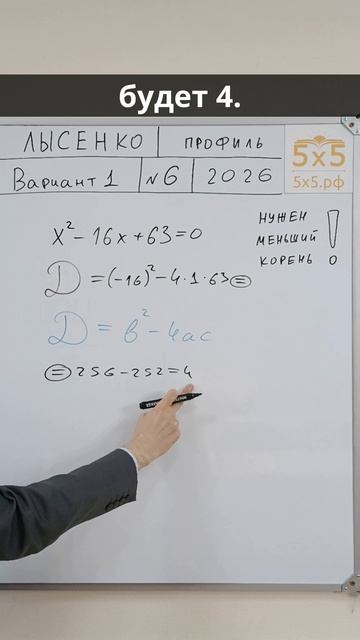 будет 4.
ЛЫСЕНКО ПРОФИЛЬ
Вариант 1 №6 2026
5x5
5x5.рф
НУЖЕН
МЕНЬШИЙ
КОРЕНЬ !
x² - 16x + 63 = 0
D = (-16)² - 4·1·63 =
D = b² - 4ac
= 256 - 252 = 4